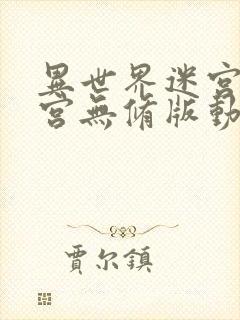 異世界迷宮
宮無修版動
賈尔鎮